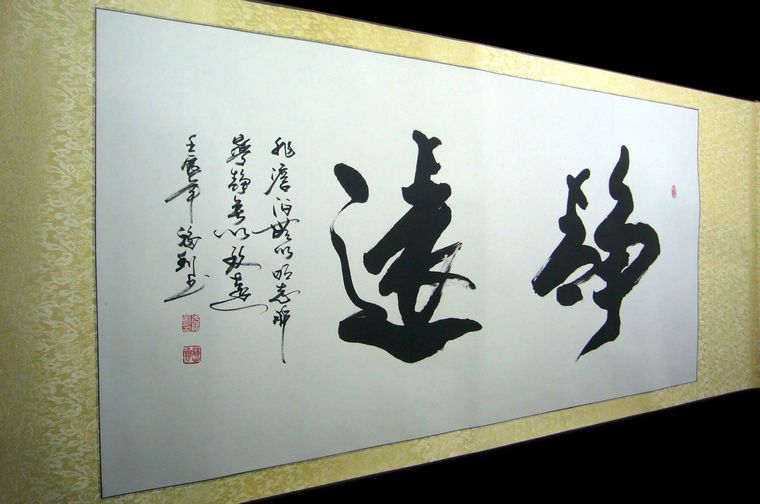 静遠
非澹泊無以明志非
寧静無以致遠
壬辰年